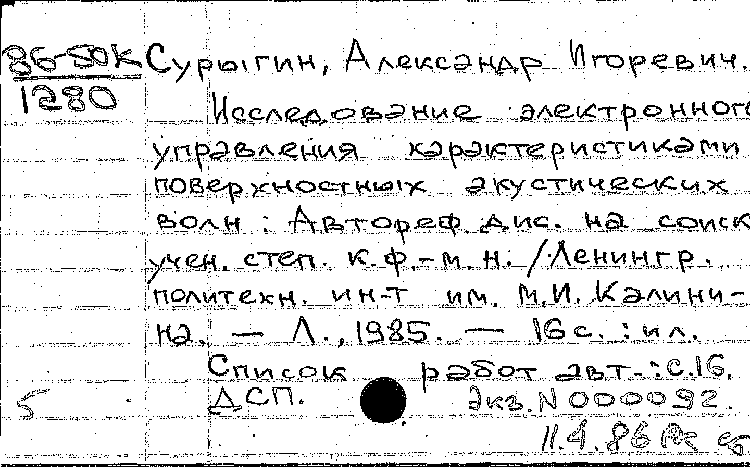 86-50К Сурыгин, Александр Игоревич.
1280
Исследование электронного
управления характеристиками
поверхностных акустических
волн : Автореф. дис. на соиск.
учен. степ. к.ф.-м.н. / Ленингр.
политехн. ин-т им. М.И. Калини-
на. — Л., 1985. — 16 с. : ил.
Список работ авт.: с.16.
5 ДСП. Экз. N 000092.
11.4.86